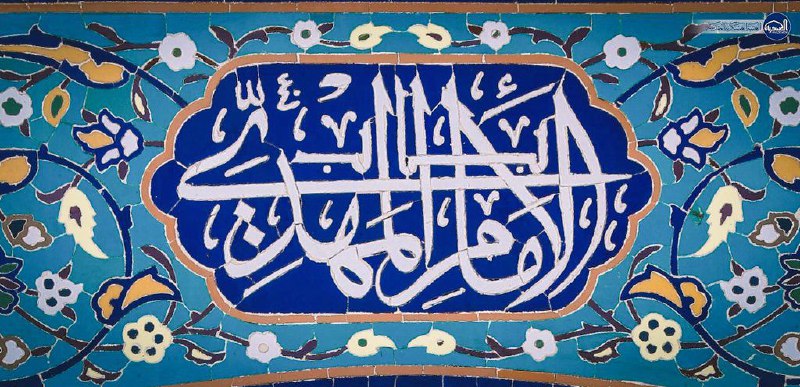 باب الامام المهدي